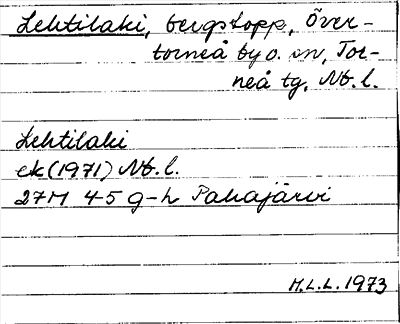 Lehtilaki, bergstopp, Över-
torneå by o. sn, Tor-
neå tg, Nb. l.
Lehtilaki
ek (1971) Nb. l.
27M 4-5 g-h Pahajärvi
M.L.L. 1973